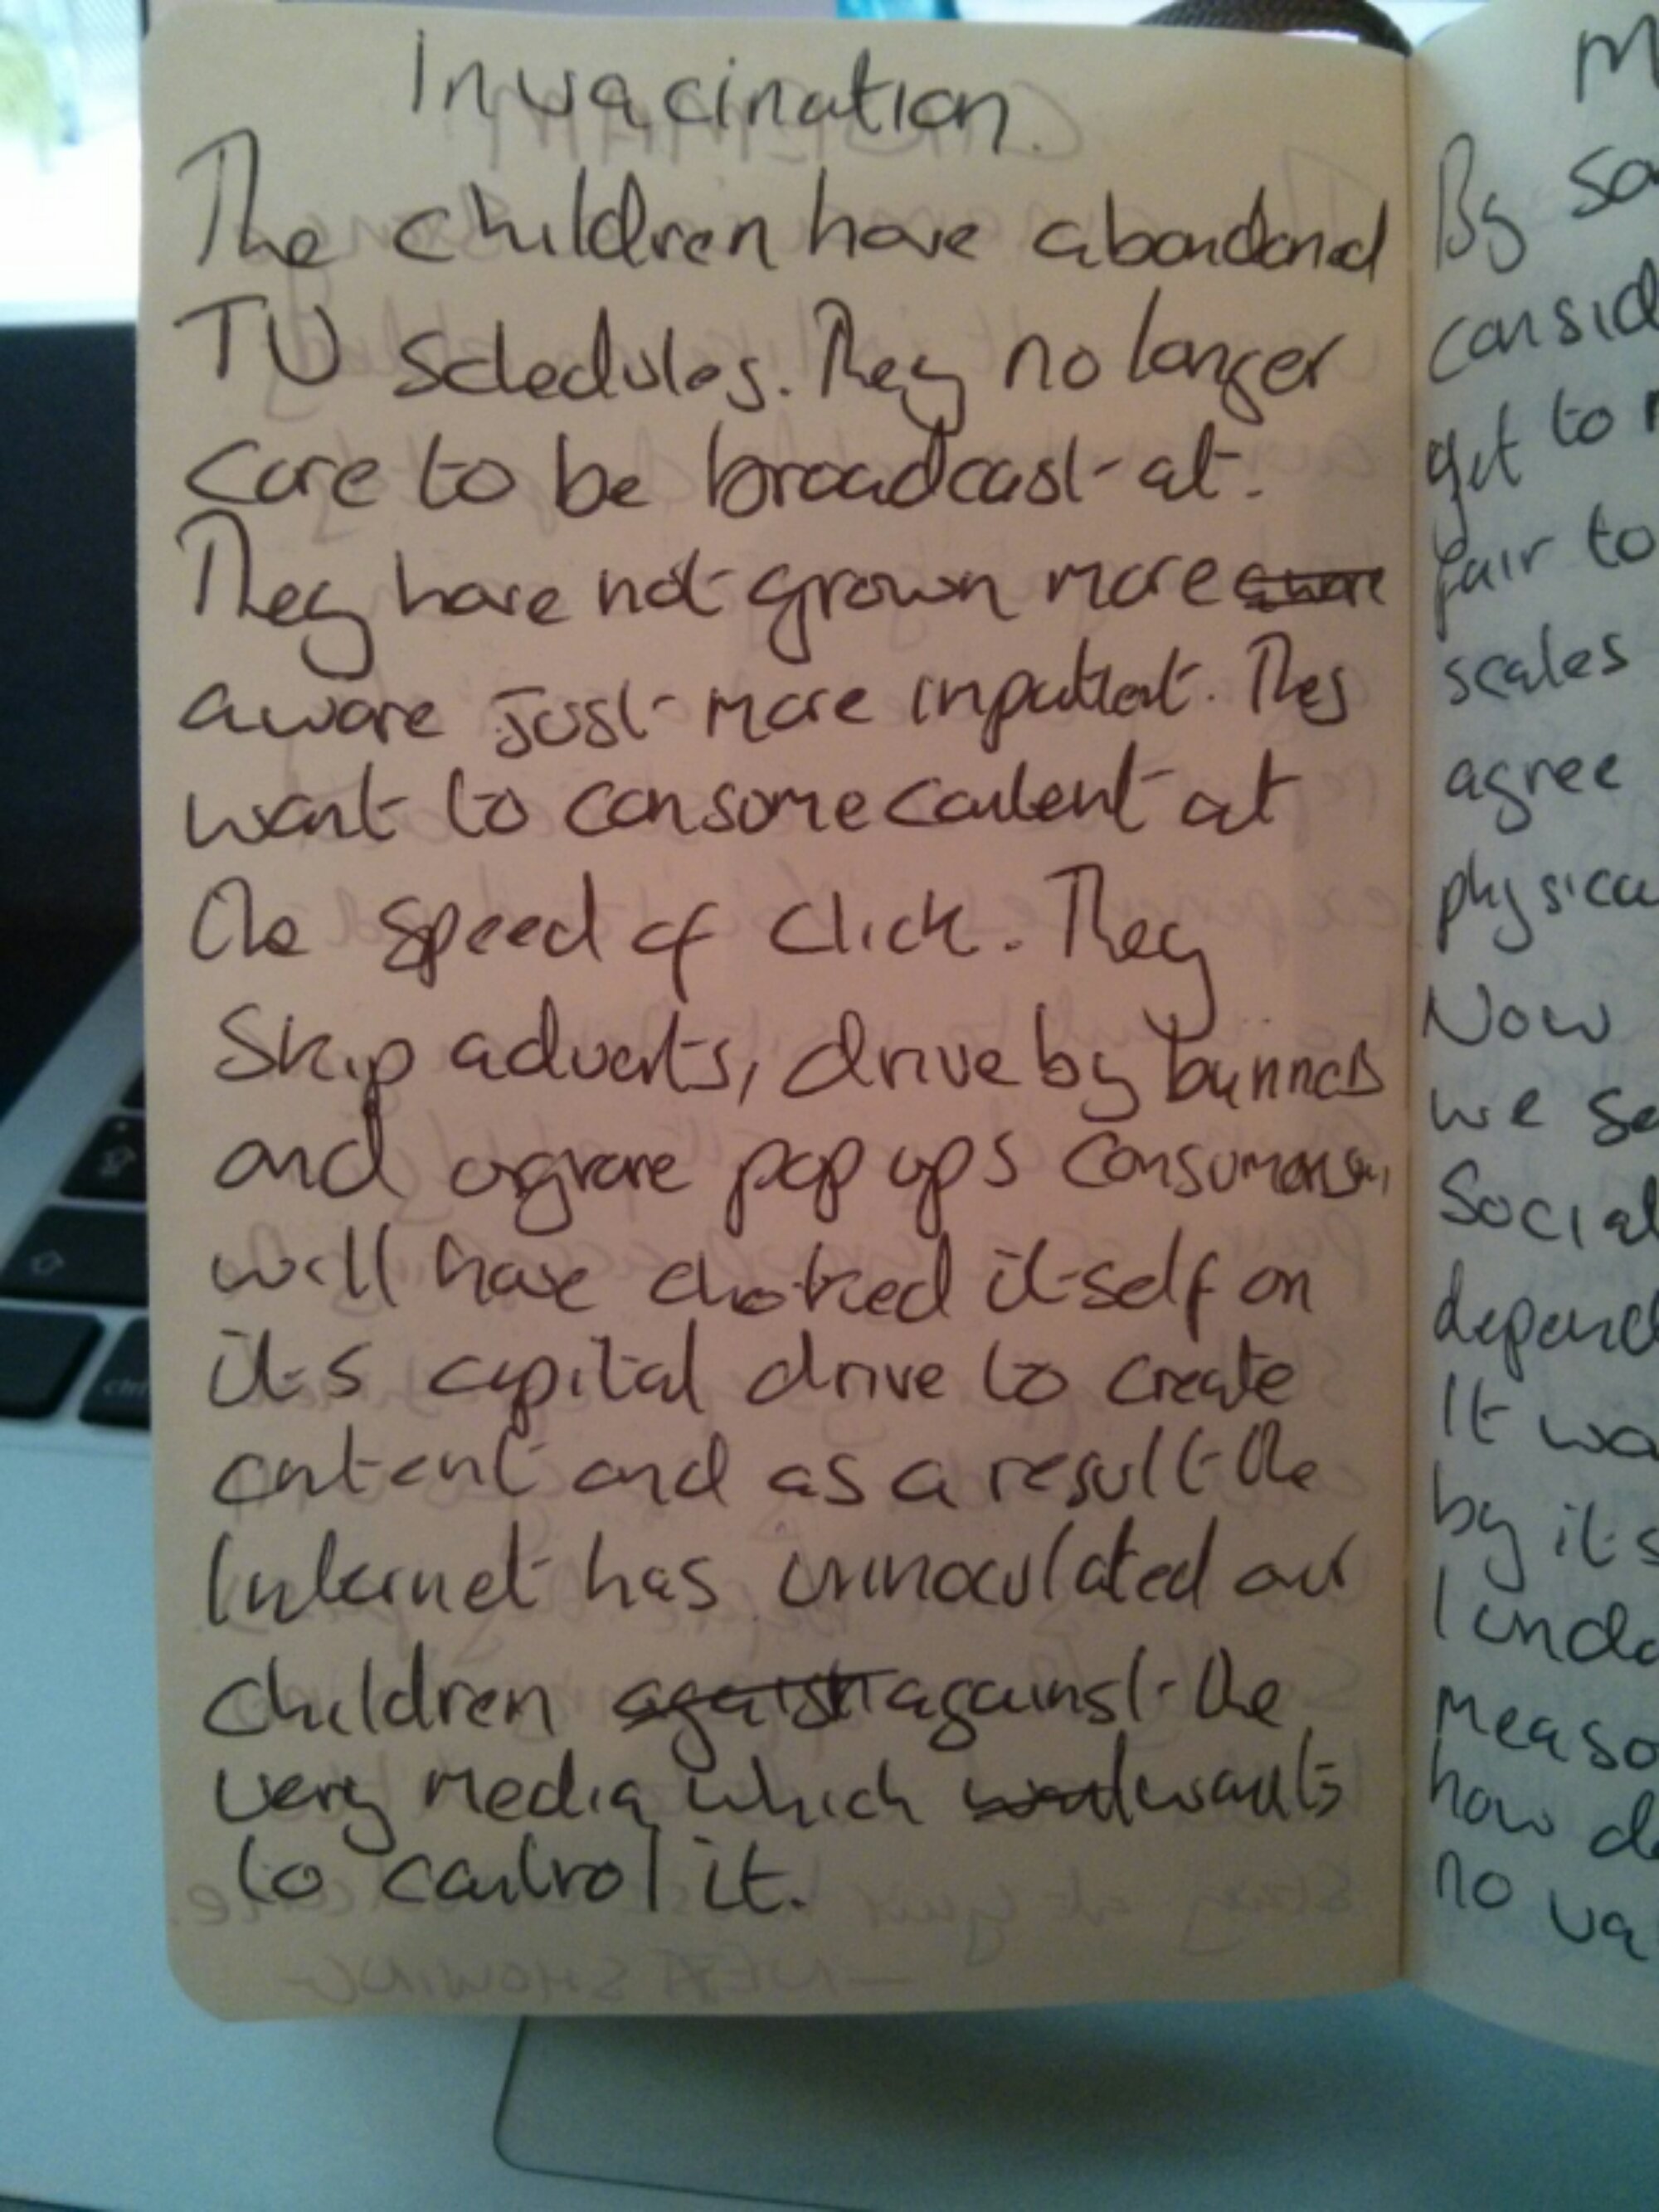 Invacination.
The children have abandoned
TV schedules. They no longer
care to be broadcast at.
They have not grown more aware
aware just more inpatient. They
want to consume content at
the speed of click. They
Skip adverts, drive by banners
and ignore pop ups consumerism
will have chocked itself on
its capital drive to create
content and as a result the
Internet has innoculated our
children against the
very media which wants
to control it.
M
By so
consid
get to
fair to
scales
agree
physica
Now
we se
Social
depend
It wa
by its
I unde
measu
how do
no va